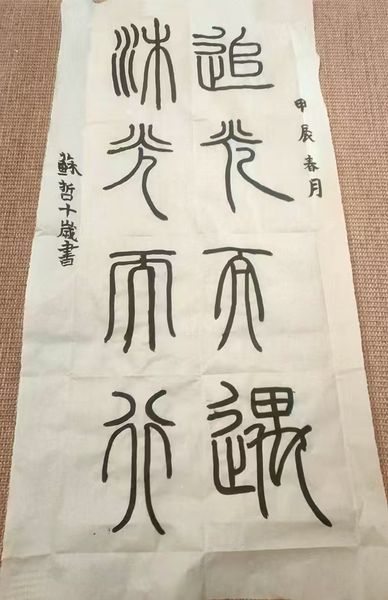 甲辰春月
追光而遇
沐光而行
蘇哲十歲書